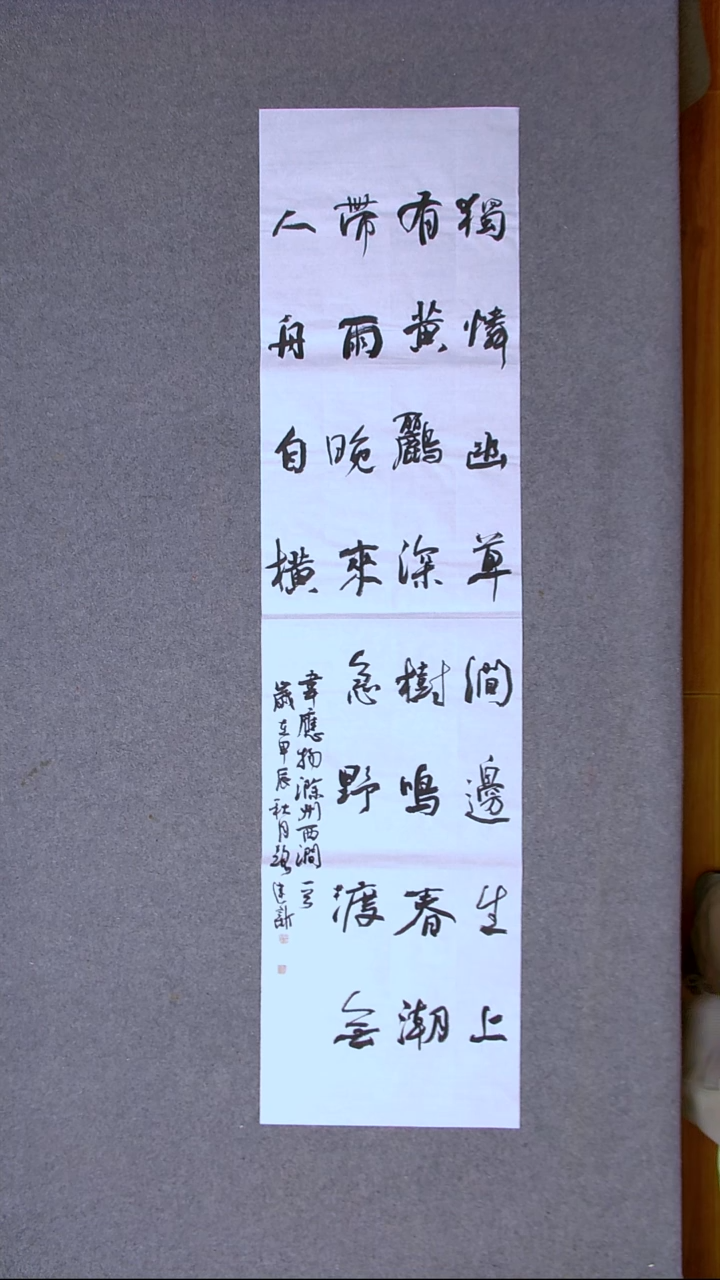 獨憐幽草澗邊生上
有黃鸝深樹鳴春潮
帶雨晚來急野渡無
人舟自橫
韋應物滁州西澗一首
歲在甲辰秋月